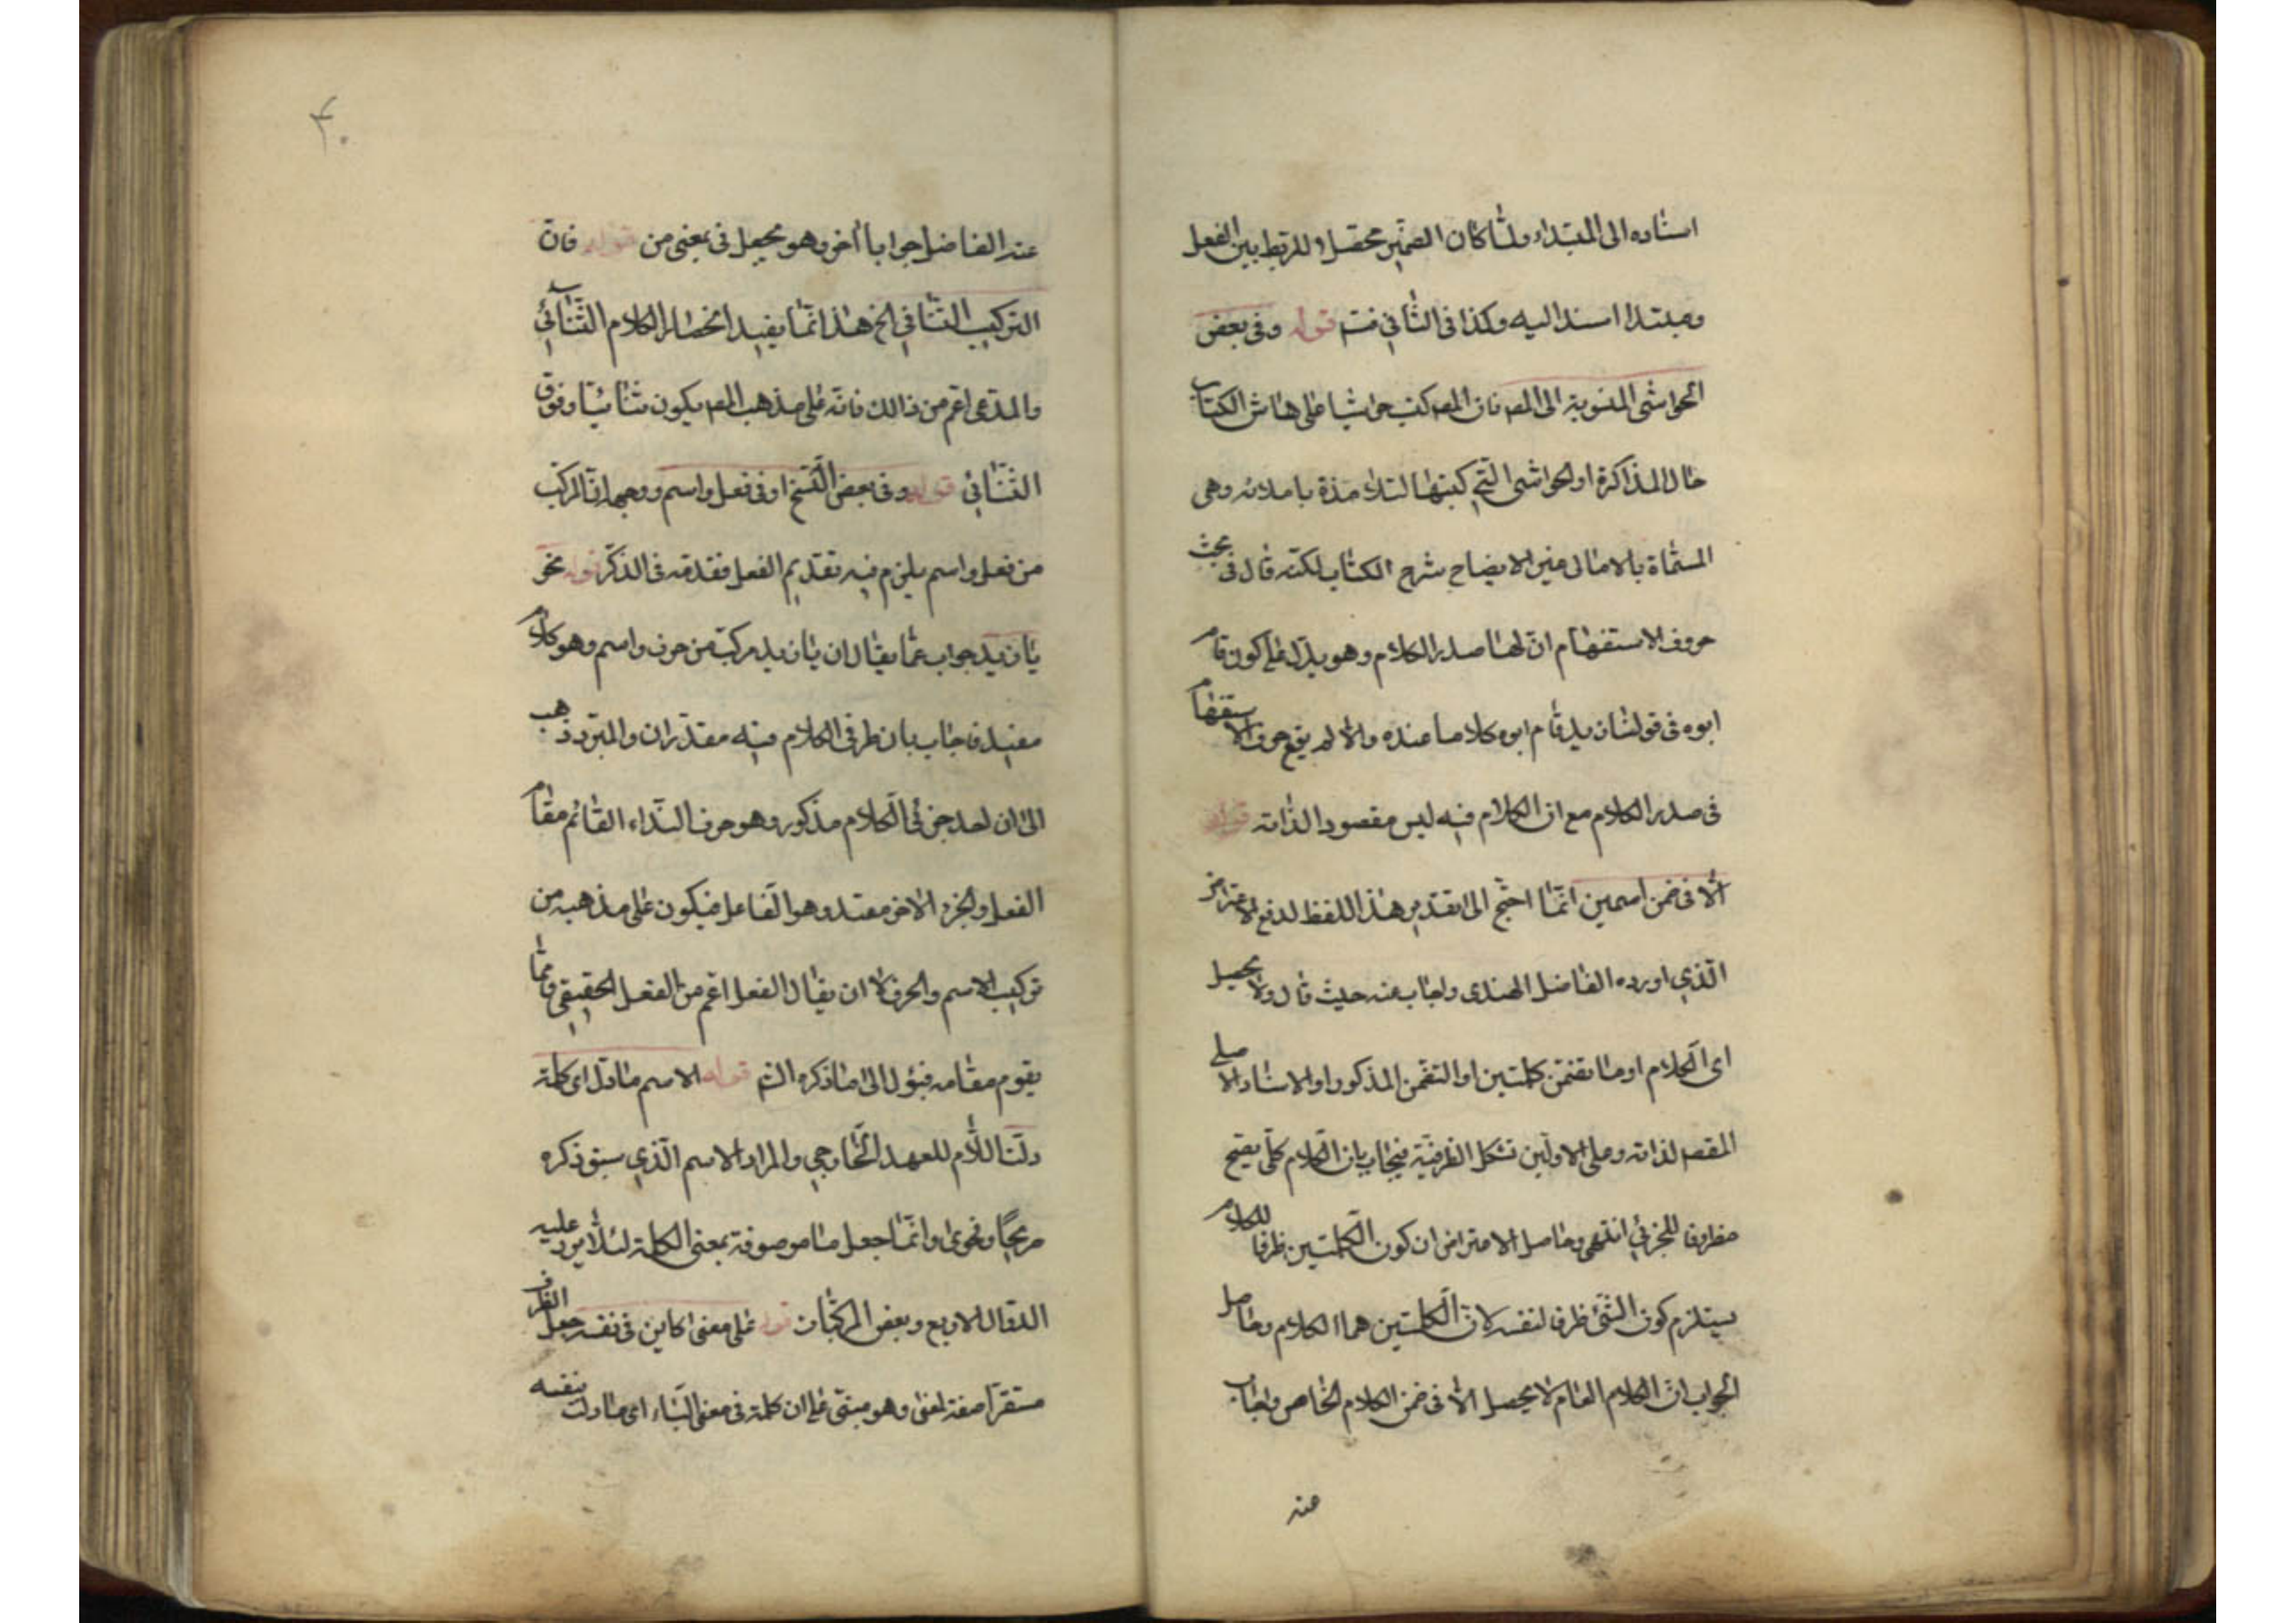 اسناده الى المبتداء ولما كان الضمير محصلا للربط بين الفعل
ومبتدا اسند اليه وكذا في الثاني فتم قوله وفي بعض
الحواشي المنسوبة الى المص فان المص كتب حواشيا على هامش الكتاب
حال المذاكرة او الحواشي التي كتبها التلامذة باملائه وهي
المسماة بالامالى غير الايضاح شرح الكتاب لكنه قال في بحث
حروف الاستفهام ان لها صدر الكلام وهو يدل على كون قام
ابوه في قولنا زيد قام ابوه كلاما عنده والا لم يقع حرف الاستفهام
في صدر الكلام مع ان الكلام فيه ليس مقصودا لذاته قوله
الا في ضمن اسمين انما احتج الى تقدير هذا اللفظ لدفع الاعتراض
الذي اورده الفاضل الهندى واجاب عنه حيث قال ولا يحصل
اى الكلام او ما تضمن كلمتين او التضمن المذكور او الاسناد الاصلي
المقصد لذاته وعلى الاولين تشكل الظرفية فيجاب بان الكلام كلى يصح
مظروفا للجزئي انتهى وحاصل الاعتراض ان كون الكلمتين ظرفا للكلام
يستلزم كون الشئ ظرفا لنفسه لان الكلمتين هما الكلام وحاصل
الجواب ان الكلام العام لا يحصل الا في ضمن الكلام الخاص واجاب
عنه
۴۰
عنه الفاضل جوابا اخر وهو يجعل في بمعنى من قوله فان
التركيب الثنائي الخ هذا انما يفيد انحصار الكلام الثنائي
والمدعى اعم من ذالك فانه على مذهب المص يكون ثنائيا وفوق
الثنائي قوله وفي بعض النسخ او في فعل واسم ووجهه ان المركب
من فعل واسم يلزم فيه تقديم الفعل فقدمه في الذكر قوله نحو
يا زيد جواب عما يقال ان يا زيد مركب من حرف واسم وهو كلام
مفيد فاجاب بان طرفي الكلام فيه مقدران والمبرد ذهب
الى ان احد جزئي الكلام مذكور وهو حرف النداء القائم مقام
الفعل والجزء الاخر مقدر وهو الفاعل فيكون على مذهبه من
تركيب الاسم والحرف الا ان يقال الفعل اعم من الفعل الحقيقي ومما
يقوم مقامه فيؤل الى ما ذكره الشم قوله الاسم ما دل اى كلمة
دلت اللام للعهد الخارجي والمراد الاسم الذي سبق ذكره
صريحا وفحوى وانما جعل ما موصوفة بمعنى الكلمة لئلا يرد عليه
الدوال الاربع وبعض المركبات قوله على معنى كاين في نفسه جعل الظرف
مستقرا صفة لمعنى وهو مبنى على ان كلمة في معنى الباء اى ما دل بنفسه